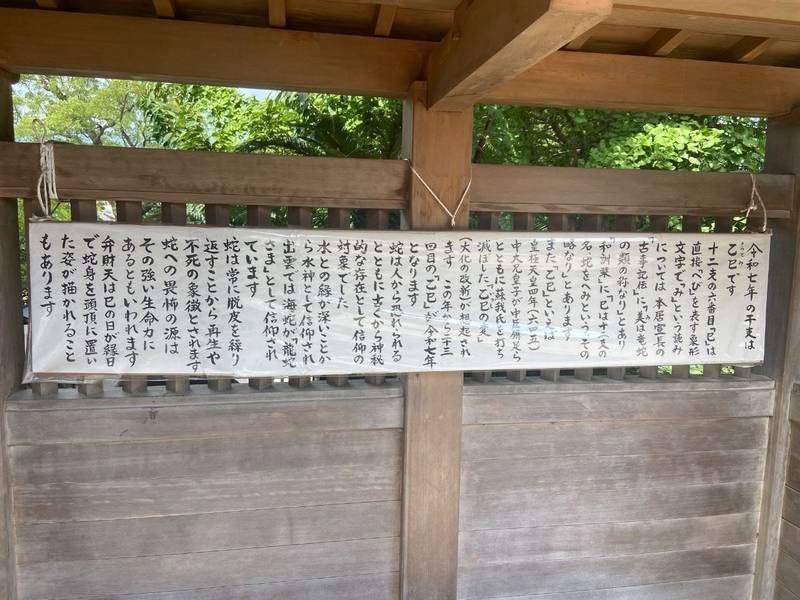 令和七年の干支は
乙巳です
きのとみ
十二支の六番目「巳」は
直接「へび」を表す象形
文字で、「み」という読み
については 本居宣長の
「古事記伝」に「美は竜蛇
の類の称なり」とあり
「和訓栞」に「巳は十二支の
名 蛇をへみといふ その
略なり」とあります
また「乙巳」といえば
皇極天皇四年（六四五）
中大兄皇子が中臣鎌足ら
とともに蘇我氏を打ち
滅ぼした「乙巳の変」
（大化の改新）が想起され
ます この年から二十三
回目の「乙巳」が令和七年
となります
蛇は人から恐れられる
とともに古くから神秘
的な存在として信仰の
対象でした
水との縁が深いことか
ら水神として信仰され
出雲では海蛇が「龍蛇
さま」として信仰され
ています
蛇は常に脱皮を繰り
返すことから再生や
不死の象徴とされます
蛇への畏怖の源は
その強い生命力に
あるともいわれます
弁財天は巳の日が縁日
で蛇身を頭頂に置い
た姿が描かれること
もあります